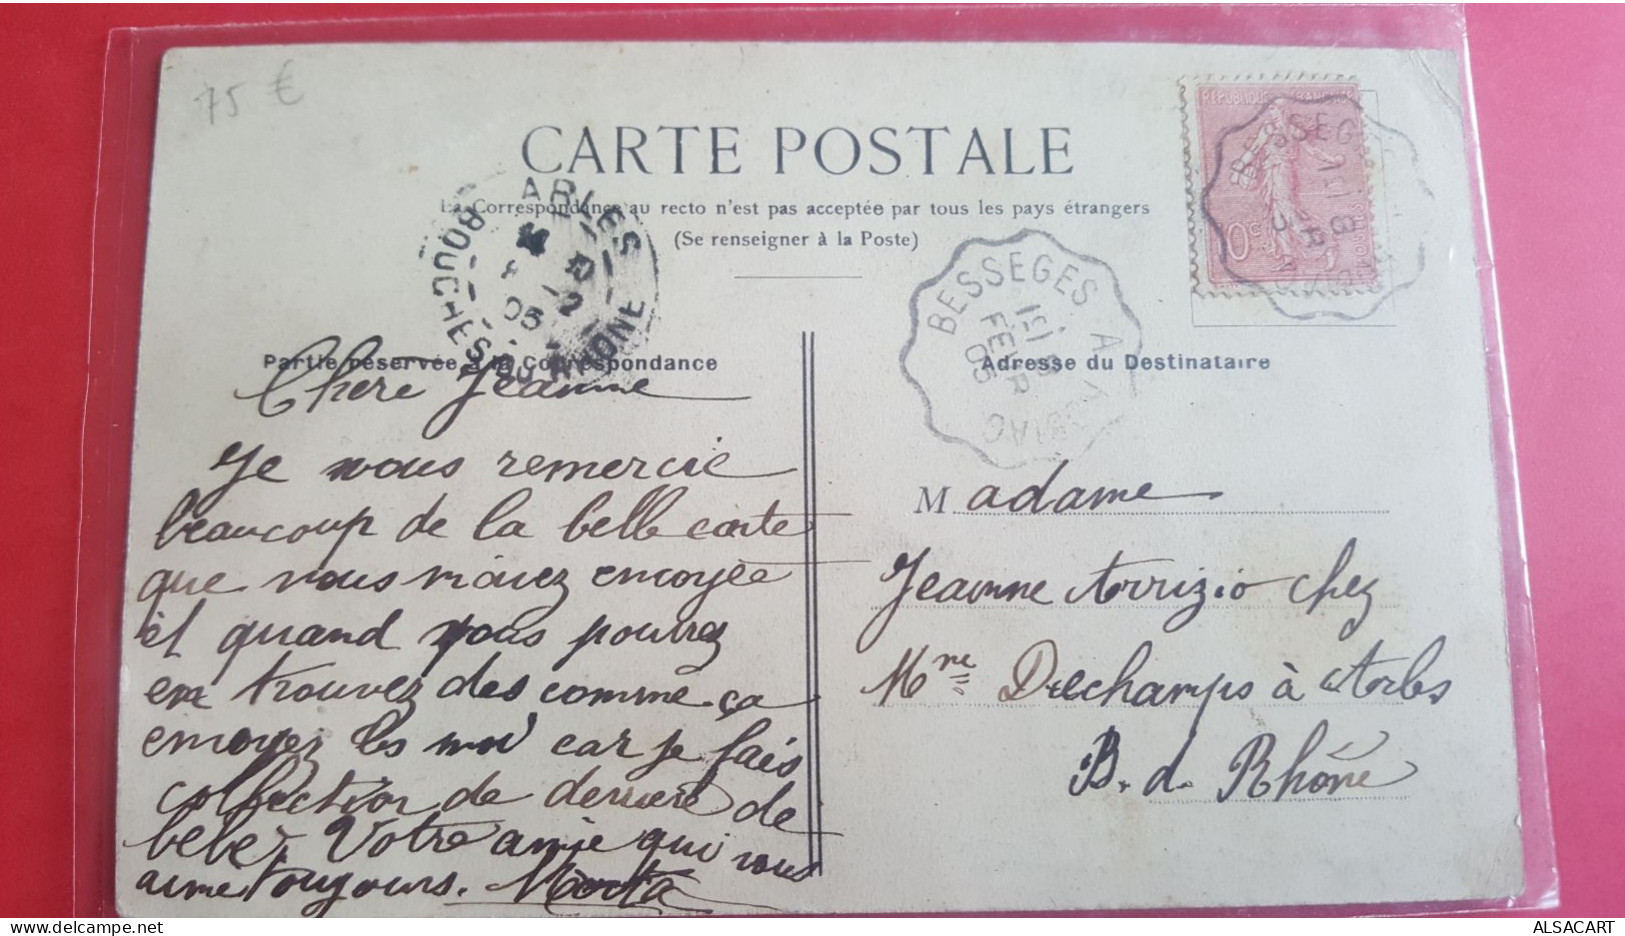 75 €
CARTE POSTALE
La Correspondance au recto n'est pas acceptée par tous les pays étrangers
(Se renseigner à la Poste)
ARLES
BOUCHES DU RHONE
05
BESSEGES A
FEVR
05
BESSEG
RÉPUBLIQUE FRANÇAISE
10c
Partie réservée à la Correspondance
Adresse du Destinataire
Chere Jeanne
Je vous remercie
beaucoup de la belle carte
que vous m'avez envoyée
et quand vous pouvez
en trouvez des comme ça
envoyez les moi car je fais
collection de derriere de
bebe. Votre amie qui vous
aime toujours. Marta
Madame
Jeanne Arrizio chez
Mme Dechamps à Arles
B. d. Rhône
ALSACART